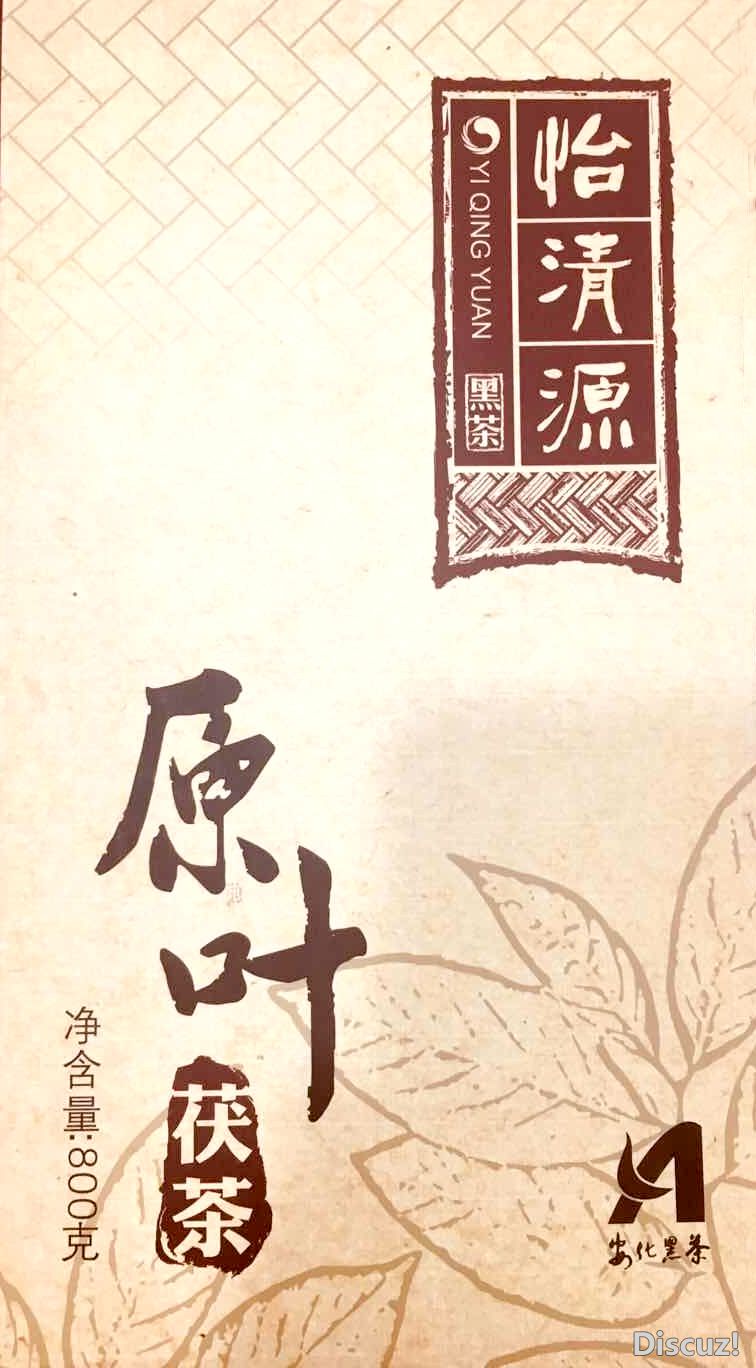 怡清源
YI QING YUAN
黑茶
原叶
茯茶
净含量:800克
安化黑茶
Discuz!